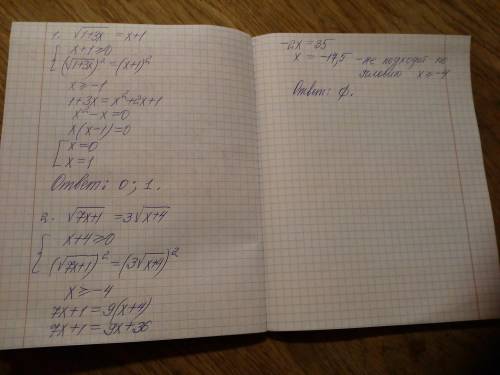 1. √(1+3x) = x+1
{ x+1≥0
(√(1+3x))² = (x+1)²
x ≥ -1
1+3x = x²+2x+1
x²-x=0
x(x-1)=0
[ x=0
x=1
Ответ: 0; 1.
2. √(7x+1) = 3√(x+4)
{ x+4≥0
(√(7x+1))² = (3√(x+4))²
x ≥ -4
7x+1 = 9(x+4)
7x+1 = 9x+36
-2x = 35
x = -17,5 - не подходит по
условию x ≥ -4
Ответ: ∅.